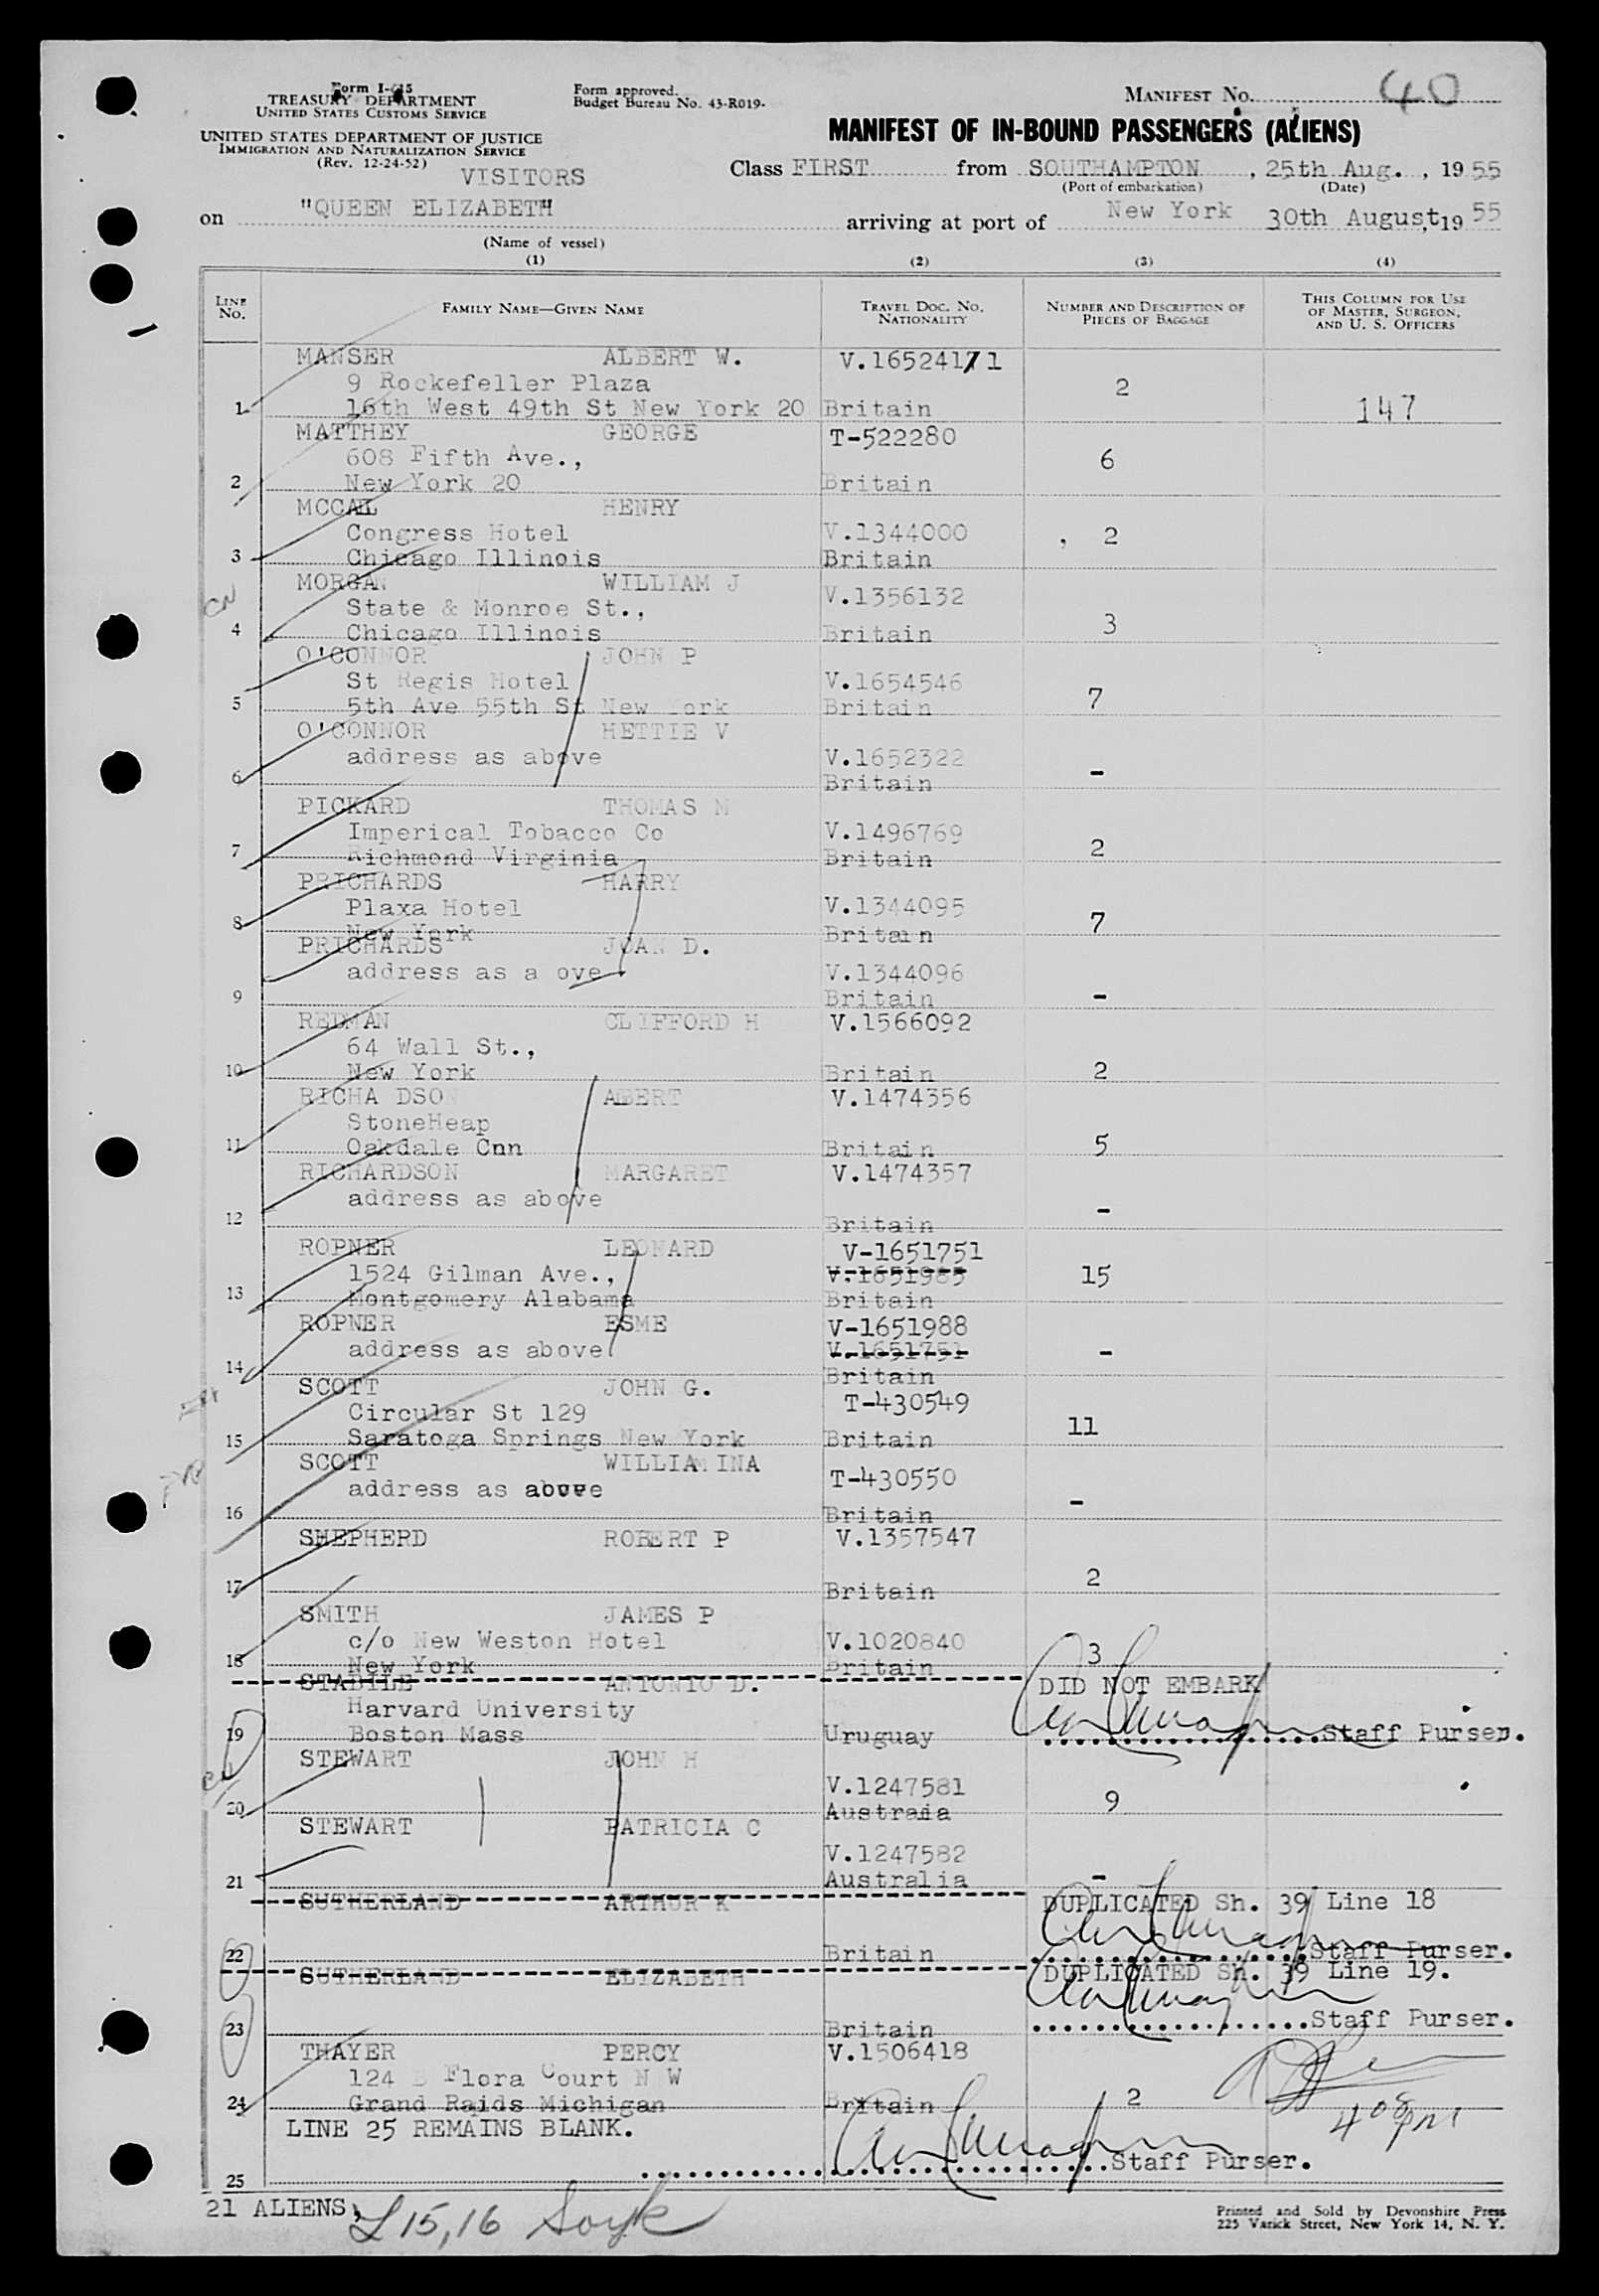 Form I-415
TREASURY DEPARTMENT
UNITED STATES CUSTOMS SERVICE
UNITED STATES DEPARTMENT OF JUSTICE
IMMIGRATION AND NATURALIZATION SERVICE
(Rev. 12-24-52)
VISITORS
Form approved.
Budget Bureau No. 43-R019.
MANIFEST No. 40
MANIFEST OF IN-BOUND PASSENGERS (ALIENS)
Class FIRST from SOUTHAMPTON, 25th Aug., 1955
(Port of embarkation) (Date)
on "QUEEN ELIZABETH" arriving at port of New York 30th August, 1955
(Name of vessel)
(1) (2) (3) (4)
LINE No. FAMILY NAME—GIVEN NAME TRAVEL DOC. NO. NATIONALITY NUMBER AND DESCRIPTION OF PIECES OF BAGGAGE THIS COLUMN FOR USE OF MASTER, SURGEON, AND U. S. OFFICERS
MANSER ALBERT W. V.1652411
9 Rockefeller Plaza 2
1 16th West 49th St New York 20 Britain 147
MATTHEY GEORGE T-522280
608 Fifth Ave., 6
2 New York 20 Britain
MCCALL HENRY
Congress Hotel V.1344000 2
3 Chicago Illinois Britain
CN MORGAN WILLIAM J V.1356132
State & Monroe St., 3
4 Chicago Illinois Britain
O'CONNOR JOHN P
St Regis Hotel V.1654546 7
5 5th Ave 55th St New York Britain
O'CONNOR HETTIE V
address as above V.1652322 -
6 Britain
PICKARD THOMAS M
Imperical Tobacco Co V.1496769 2
7 Richmond Virginia Britain
PRICHARDS HARRY
Plaxa Hotel V.1344095 7
8 New York Britain
PRICHARDS JOAN D.
address as a ove V.1344096
9 Britain -
REDMAN CLIFFORD H V.1566092
64 Wall St.,
10 New York Britain 2
RICHA DSON ALBERT V.1474356
StoneHeap
11 Oakdale Cnn Britain 5
RICHARDSON MARGARET V.1474357
address as above -
12 Britain
ROPNER LEONARD V-1651751
1524 Gilman Ave., V.1651985 15
13 Montgomery Alabama Britain
ROPNER ESME V-1651988
address as above V.1651751 -
14 Britain
SCOTT JOHN G. T-430549
Circular St 129 11
15 Saratoga Springs New York Britain
SCOTT WILLIAMINA T-430550
address as above -
16 Britain
SHEPHERD ROBERT P V.1357547
17 Britain 2
SMITH JAMES P
c/o New Weston Hotel V.1020840 3
18 New York Britain
STABILE ANTONIO D. DID NOT EMBARK
Harvard University
19 Boston Mass Uruguay Staff Purser.
STEWART JOHN H
V.1247581 9
20 Austraia
STEWART PATRICIA C
V.1247582
21 Australia -
SUTHERLAND ARTHUR K DUPLICATED Sh. 39 Line 18
22 Britain Staff Purser.
SUTHERLAND ELIZABETH DUPLICATED Sh. 39 Line 19.
23 Britain Staff Purser.
THAYER PERCY V.1506418
124 B Flora Court N W
24 Grand Raids Michigan Britain 2 4 08 pm
LINE 25 REMAINS BLANK.
Staff Purser.
25
21 ALIENS, L 15,16
Printed and Sold by Devonshire Press
225 Varick Street, New York 14, N. Y.